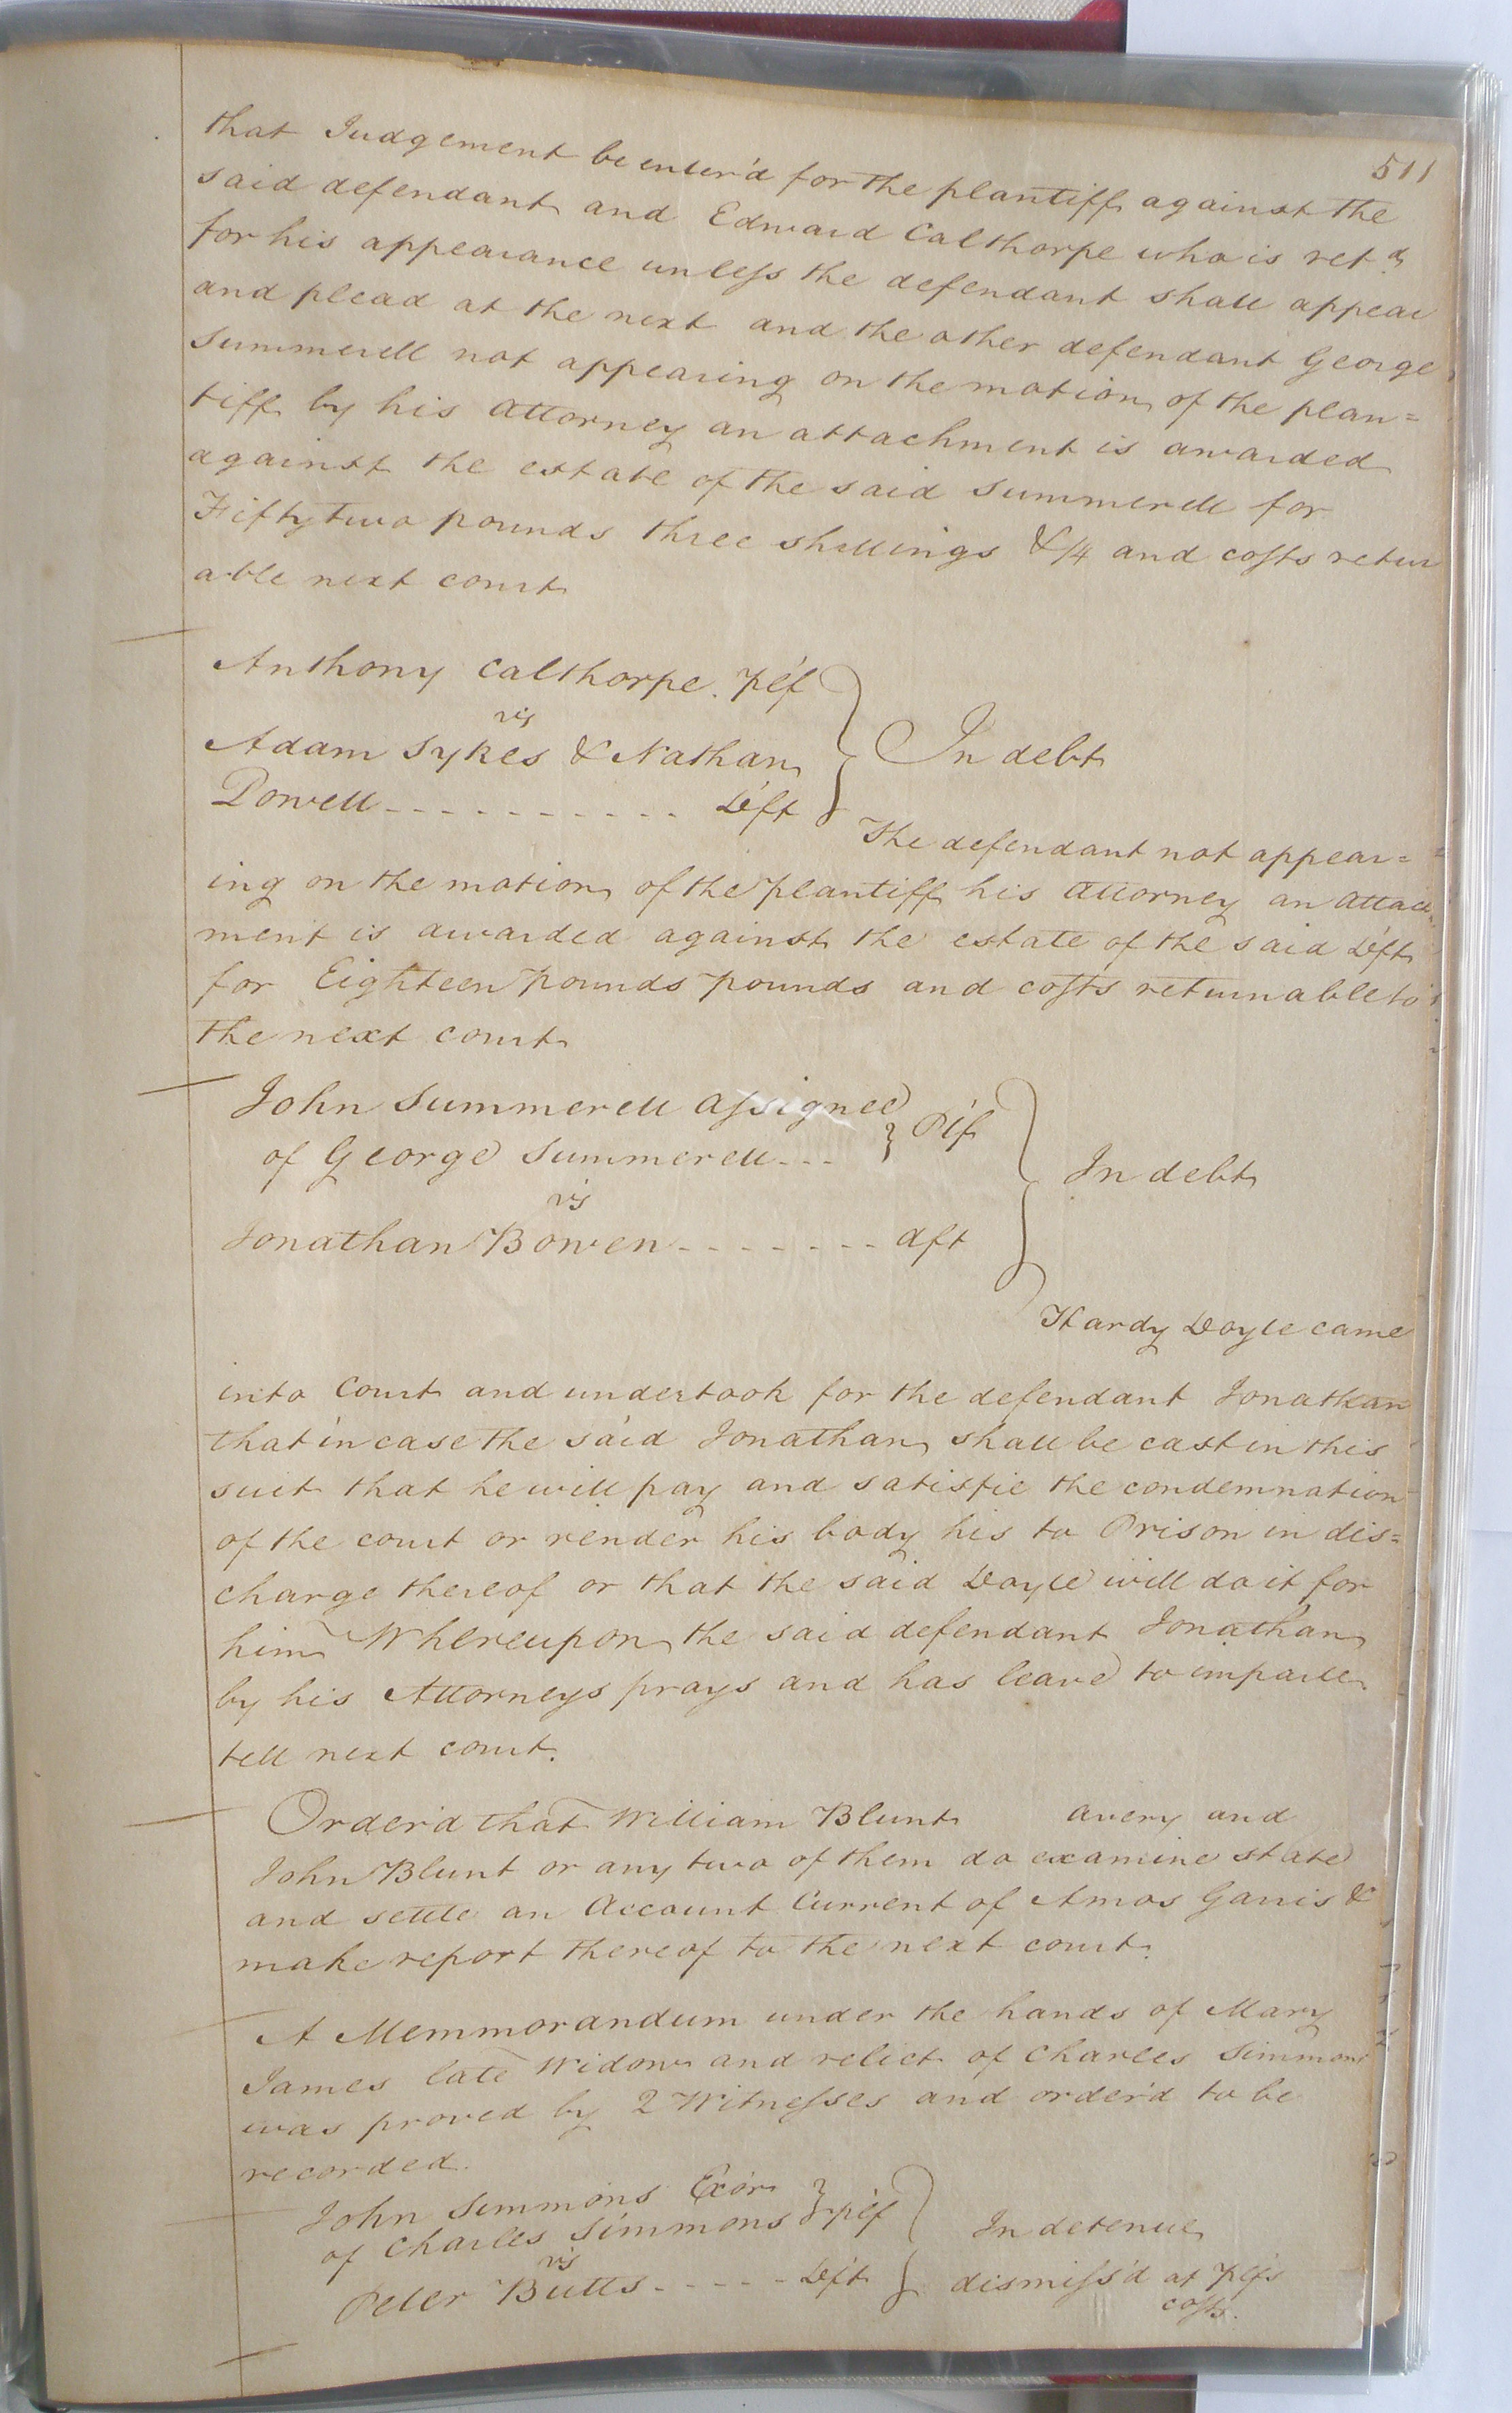 511
that Judgement be enter'd for the plantiff against the
said defendant and Edward Calthorpe who is ret.d
for his appearance unless the defendant shall appear
and plead at the next and the other defendant George
Summerell not appearing on the motion of the plan=
tiff by his attorney an attachment is awarded
against the estate of the said Summerell for
Fifty two pounds three shillings & 1/4 and costs retur
able next court
Anthony Calthorpe. pl'f
vs
Adam Sykes & Nathan
Powell - - - - - - - - - - Def't
In debt
The defendant not appear=
ing on the motion of the plantiff his attorney an attach
ment is awarded against the estate of the said Def't
for Eighteen pounds pounds and costs returnable to
the next court
John Summerell assignee
of George Summerell - - -
Pl'f
vs
Jonathan Bowen - - - - - - - - dft
In debt
Hardy Doyle came
into Court and undertook for the defendant Jonathan
that in case the said Jonathan shall be cast in this
suit that he will pay and satisfie the condemnation
of the court or render his body his to Prison in dis=
charge thereof or that the said Doyle will do it for
him Whereupon the said defendant Jonathan
by his Attorneys prays and has leave to imparle
tell next court.
Order'd that William Blunt avery and
John Blunt or any two of them do examine state
and settle an Account Current of Amos Garris &
make report thereof to the next court.
A Memmorandum under the hands of Mary
James late Widow and relict of Charles Simmons
was proved by 2 Witnesses and order'd to be
recorded.
John Simmons Ex'or
of Charles Simmons
pl'f
vs
Peter Butts - - - - - Def't
In detenue
dismiss'd at pl'fs
costs.